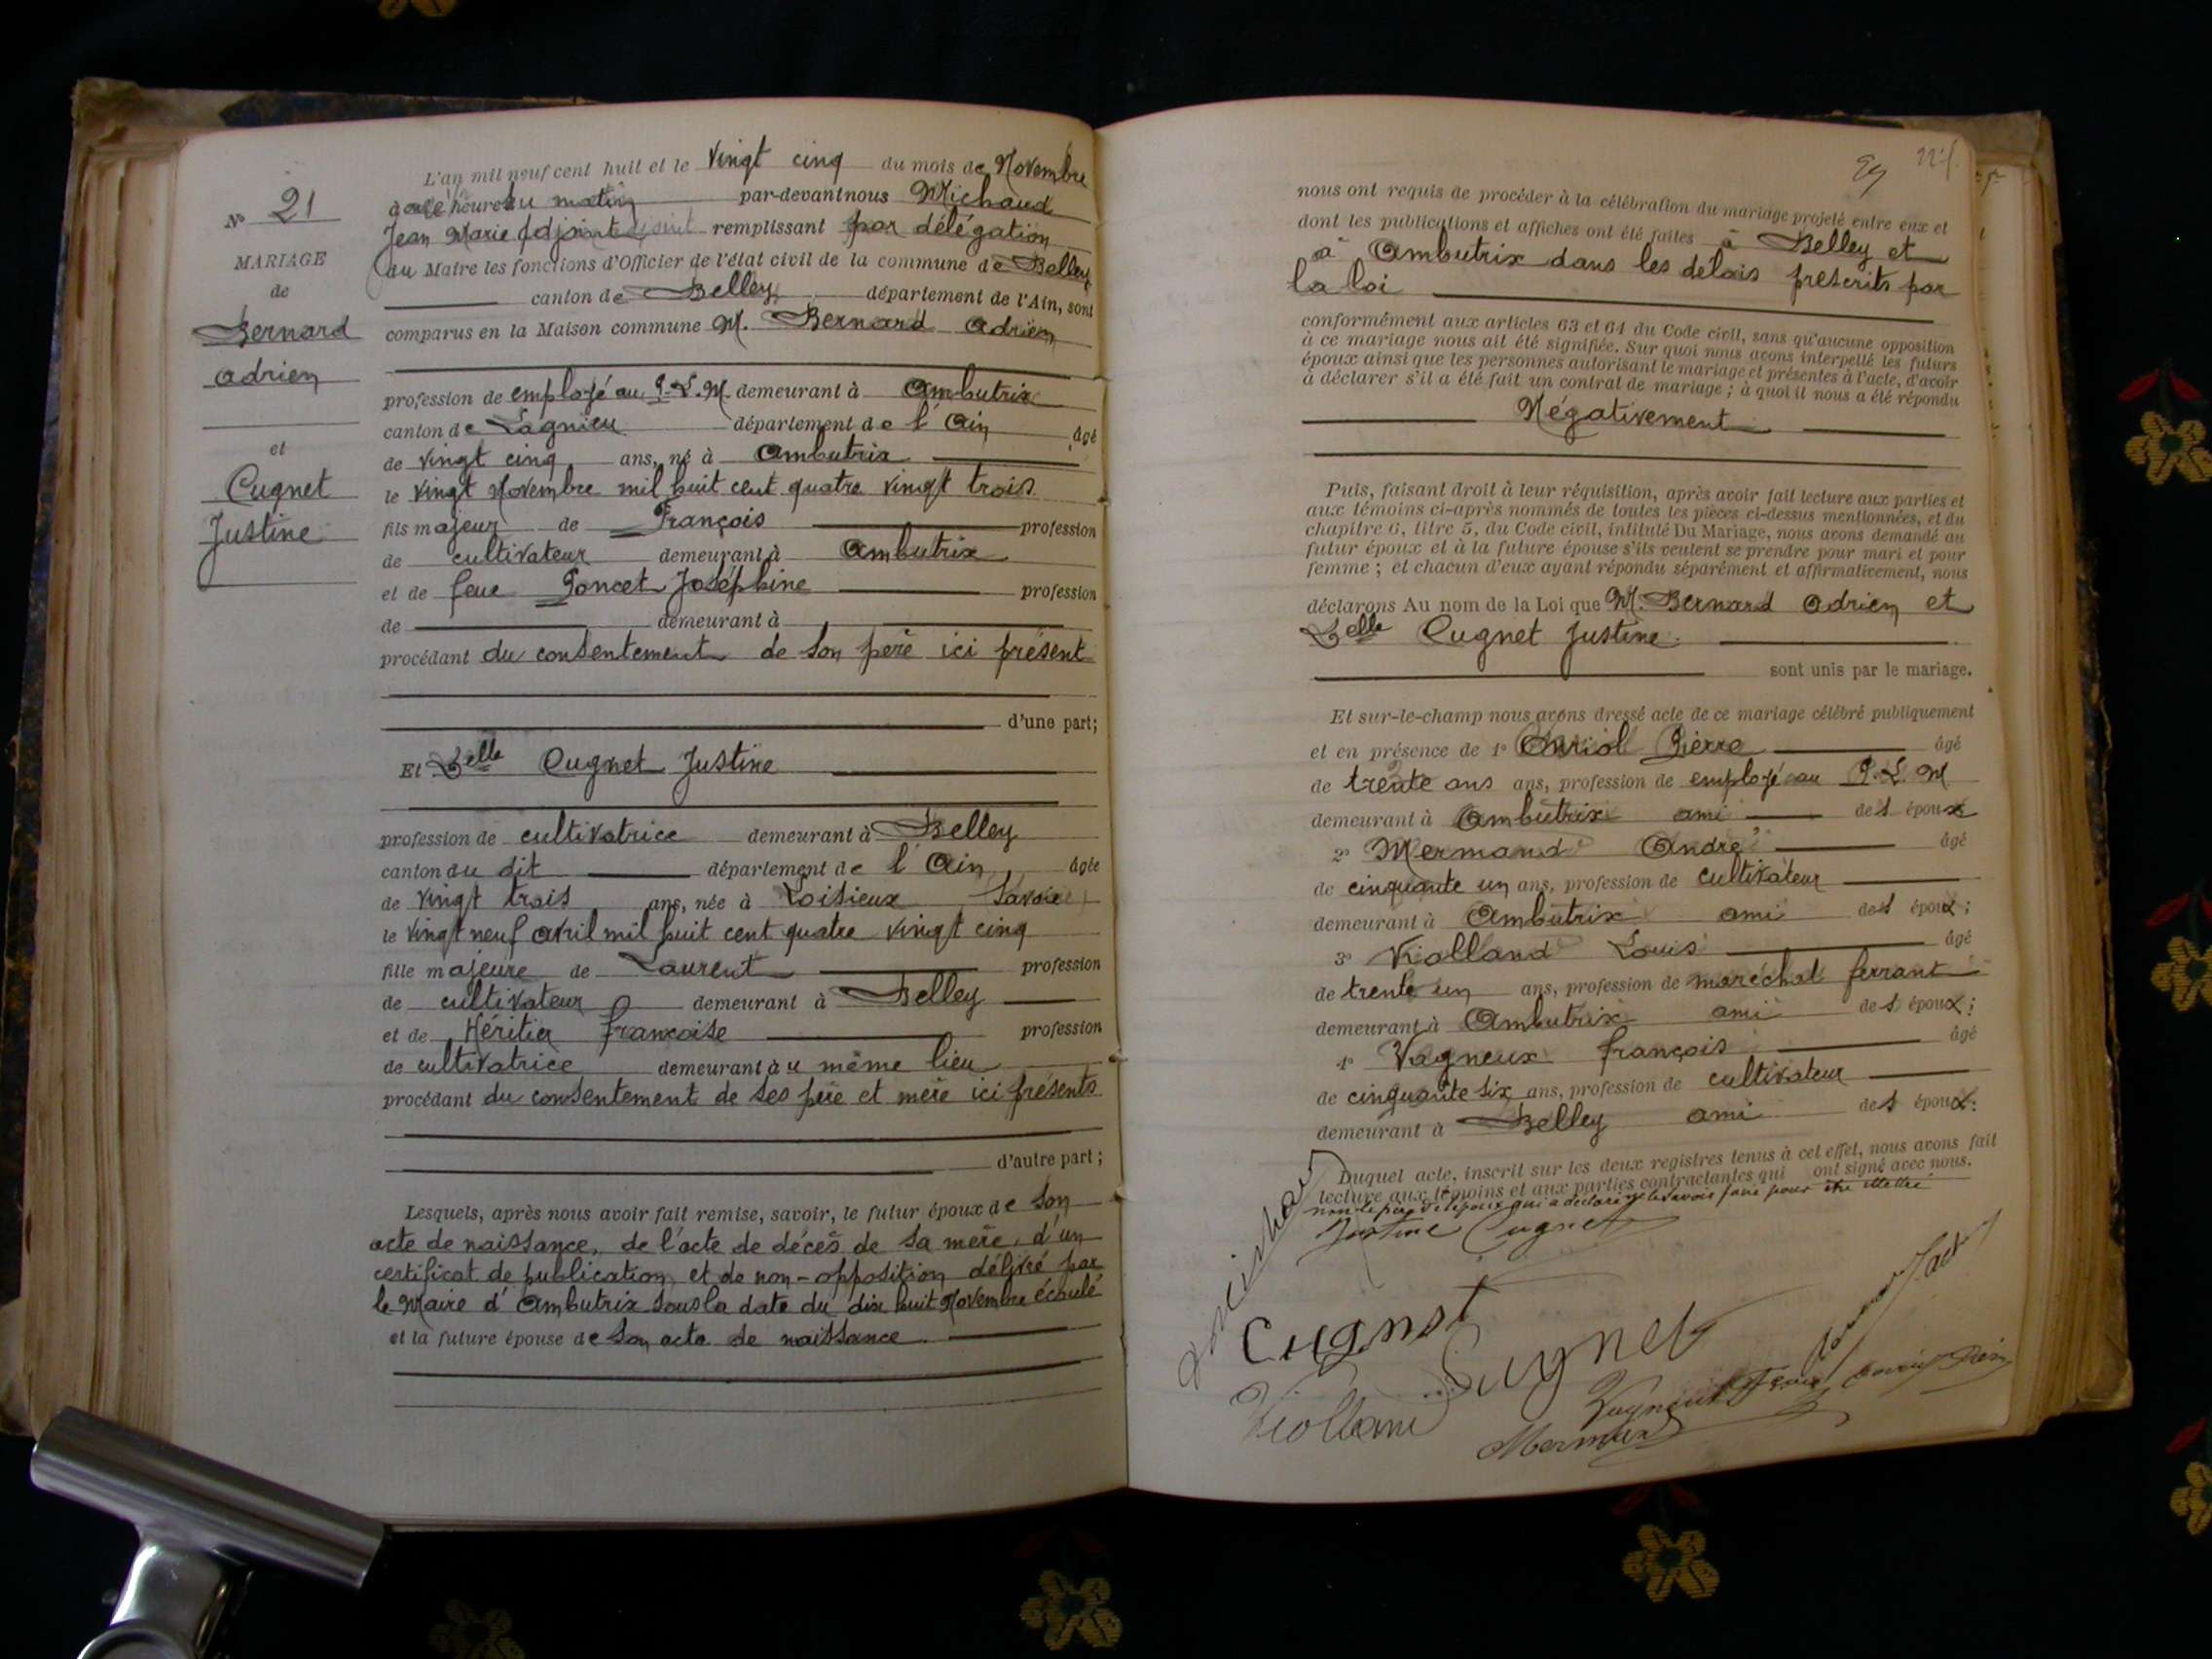 L'an mil neuf cent huit et le vingt cinq du mois de Novembre
heure du matin par-devant nous Michaud
Jean Marie Adjoint remplissant par délégation
du Maire les fonctions d'Officier de l'état civil de la commune de Belley
canton de Belley département de l'Ain, sont
comparus en la Maison commune M. Bernard Adrien
profession de employé au P.L.M. demeurant à Ambutrix
canton de Lagnieu département de l'Ain âgé
de vingt cinq ans, né à Ambutrix
le vingt Novembre mil huit cent quatre vingt trois
fils majeur de François profession
de cultivateur demeurant à Ambutrix
et de feue Poncet Joséphine profession
de demeurant à
procédant du consentement de son père ici présent
d'une part;
Et Delle Cugnet Justine
profession de cultivatrice demeurant à Belley
canton du dit département de l'Ain âgée
de vingt trois ans, née à Loisieux Savoie
le vingt neuf avril mil huit cent quatre vingt cinq
fille majeure de Laurent profession
de cultivateur demeurant à Belley
et de Héritier Françoise profession
de cultivatrice demeurant au même lieu
procédant du consentement de ses père et mère ici présents
d'autre part;
Lesquels, après nous avoir fait remise, savoir, le futur époux de son
acte de naissance, de l'acte de décès de sa mère, d'un
certificat de publication et de non-opposition délivré par
le Maire d'Ambutrix sous la date du dix huit Novembre écoulé
et la future épouse de son acte de naissance
N° 21
MARIAGE
de
Bernard
Adrien
et
Cugnet
Justine
nous ont requis de procéder à la célébration du mariage projeté entre eux et
dont les publications et affiches ont été faites à Belley et
à Ambutrix dans les délais prescrits par
la loi
conformément aux articles 63 et 64 du Code civil, sans qu'aucune opposition
à ce mariage nous ait été signifiée. Sur quoi nous avons interpellé les futurs
époux ainsi que les personnes autorisant le mariage et présentes à l'acte, d'avoir
à déclarer s'il a été fait un contrat de mariage; à quoi il nous a été répondu
Négativement
Puis, faisant droit à leur réquisition, après avoir fait lecture aux parties et
aux témoins ci-après nommés de toutes les pièces ci-dessus mentionnées, et du
chapitre 6, titre 5, du Code civil, intitulé Du Mariage, nous avons demandé au
futur époux et à la future épouse s'ils veulent se prendre pour mari et pour
femme; et chacun d'eux ayant répondu séparément et affirmativement, nous
déclarons Au nom de la Loi que M. Bernard Adrien et
Delle Cugnet Justine
sont unis par le mariage.
Et sur-le-champ nous avons dressé acte de ce mariage célébré publiquement
et en présence de 1° Onriol Pierre âgé
de trente ans ans, profession de employé au P.L.M
demeurant à Ambutrix ami des époux
2° Mermand André âgé
de cinquante un ans, profession de cultivateur
demeurant à Ambutrix ami des époux;
3° Violland Louis âgé
de trente un ans, profession de maréchal ferrant
demeurant à Ambutrix ami des époux;
4° Vagneux François âgé
de cinquante six ans, profession de cultivateur
demeurant à Belley ami des époux:
Duquel acte, inscrit sur les deux registres tenus à cet effet, nous avons fait
lecture aux témoins et aux parties contractantes qui ont signé avec nous.
non le père de l'époux qui a déclaré ne le savoir faire pour être illettré
Justine Cugnet
Cugnet
Cugnet
Violland
Mermand